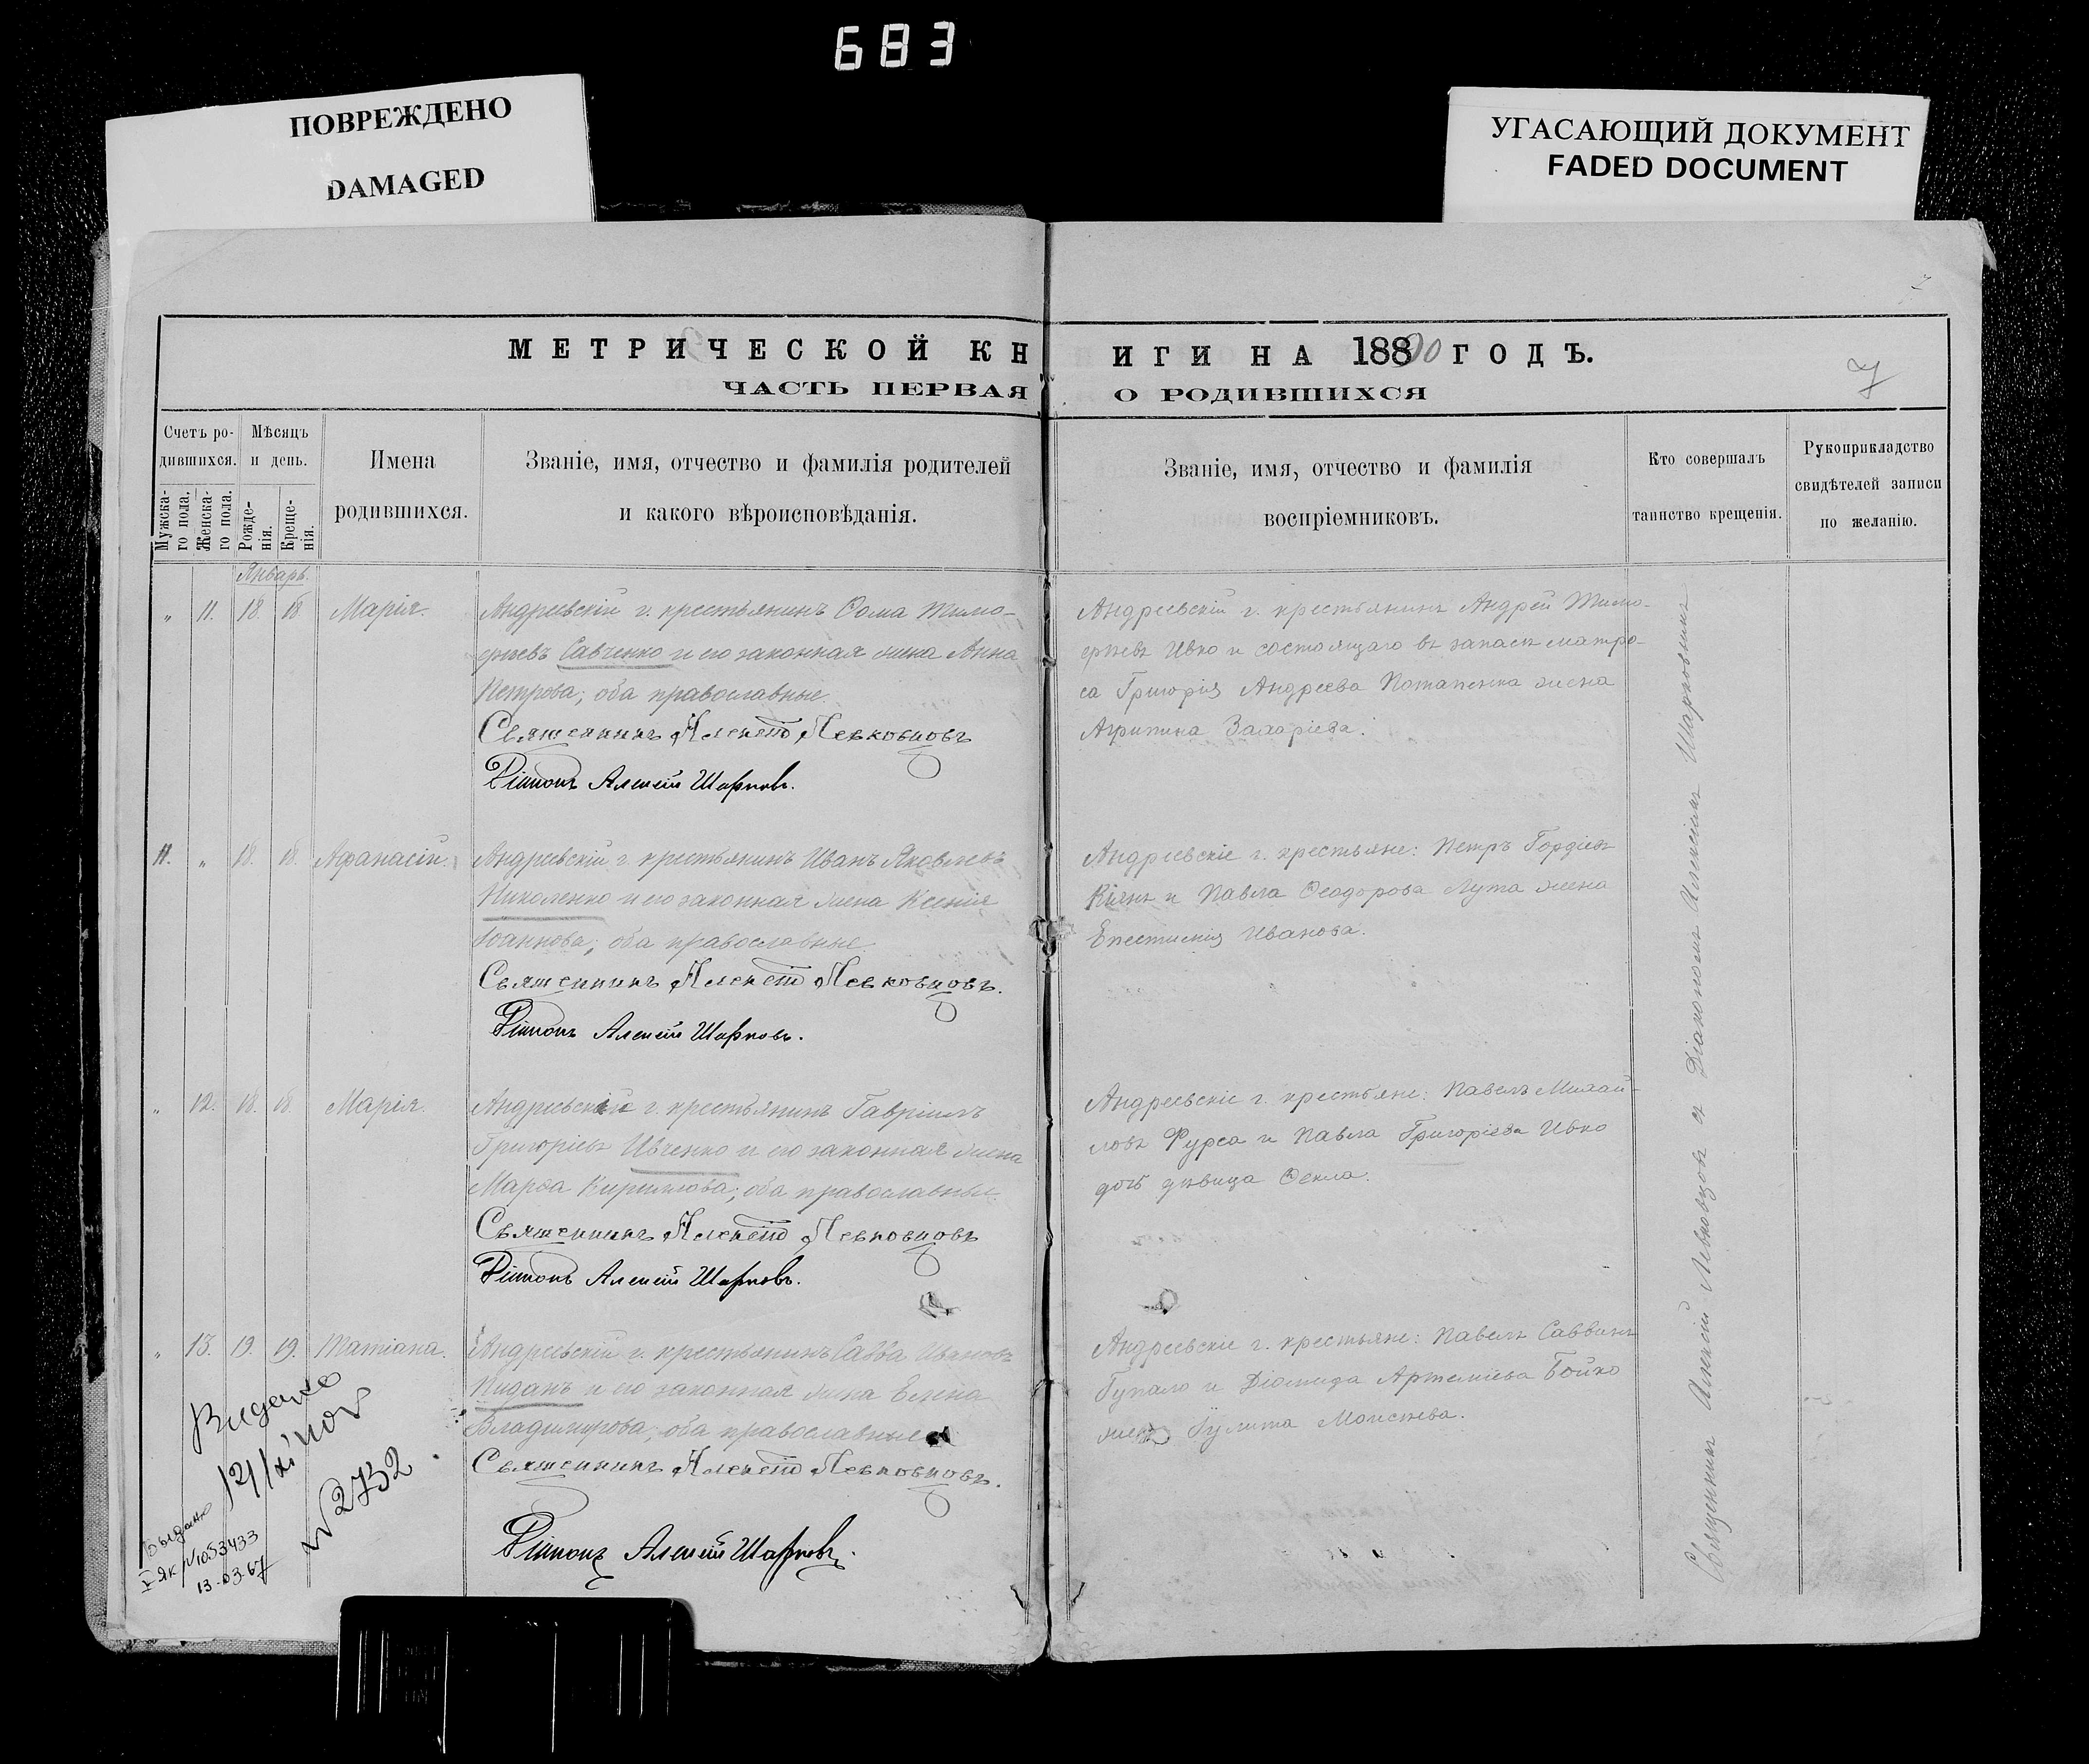 683
ПОВРЕЖДЕНО
DAMAGED
УГАСАЮЩИЙ ДОКУМЕНТ
FADED DOCUMENT
7
МЕТРИЧЕСКОЙ КНИГИ НА 1890 ГОДЪ.
ЧАСТЬ ПЕРВАЯ О РОДИВШИХСЯ
7
Счетъ ро-
дившихся.
Мужска-
го пола.
Женска-
го пола.
Мѣсяцъ
и день.
Рожде-
нія.
Креще-
нія.
Имена
родившихся.
Званіе, имя, отчество и фамилія родителей
и какого вѣроисповѣданія.
Званіе, имя, отчество и фамилія
воспріемниковъ.
Кто совершалъ
таинство крещенія.
Рукоприкладство
свидѣтелей записи
по желанію.
Январь.
" 11. 18. 18 Марія.
Андреевскій г. крестьянинъ Ѳома Тимо-
ѳеевъ Савченко и его законная жена Анна
Петрова; оба православные.
Священникъ Алексій Левковцовъ
Діаконъ Алексій Шарковъ.
Андреевскій г. крестьянинъ Андрей Тимо-
ѳеевъ Ивко и состоящаго въ запасѣ матро-
са Григорія Андреева Потапенка жена
Агрипина Захаріева.
11. " 18. 18. Афанасій.
Андреевскій г. крестьянинъ Иванъ Яковлевъ
Николенко и его законная жена Ксенія
Іоаннова; оба православные.
Священникъ Алексій Левковцовъ.
Діаконъ Алексій Шарковъ.
Андреевскіе г. крестьяне: Петръ Гордіевъ
Кіянъ и Павла Ѳеодорова Лута жена
Епестимія Иванова.
" 12. 18. 18. Марія.
Андреевскій г. крестьянинъ Гавріилъ
Григоріевъ Ивченко и его законная жена
Марѳа Кириллова; оба православные.
Священникъ Алексій Левковцовъ
Діаконъ Алексій Шарковъ.
Андреевскіе г. крестьяне: Павелъ Михай-
ловъ Фурса и Павла Григоріева Ивко
дочь дѣвица Ѳекла.
" 13. 19. 19. Татіана.
Андреевскій г. крестьянинъ Савва Ивановъ
Киданъ и его законная жена Елена
Владимірова; оба православные
Священникъ Алексій Левковцовъ.
Діаконъ Алексій Шарковъ.
Андреевскіе г. крестьяне: Павелъ Саввинъ
Гупало и Діомида Артеміева Бойко
жена Гулита Моисеева.
Священникъ Алексій Левковцовъ съ Діакономъ Алексіемъ Шарковымъ
Видано
№ 2732
Выдано
I-ЯК №1053433
13-03-67